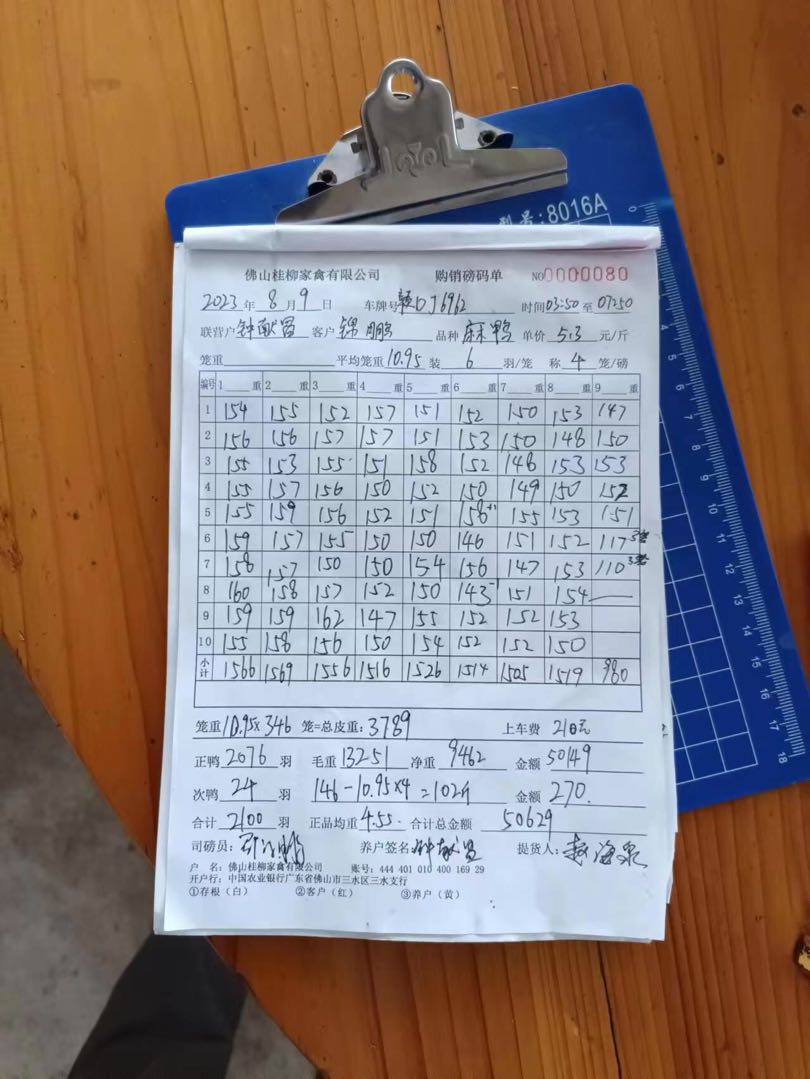 型号:8016A
佛山桂柳家禽有限公司 购销磅码单 NO0000080
2023年 8月 9日 车牌号 J6962 时间 03:50 至 07:50
联营户 钟献昌 客户 锦鹏 品种 麻鸭 单价 5.3 元/斤
笼重 平均笼重 10.95 装 6 羽/笼 称 4 笼/磅
编号 1 重 2 重 3 重 4 重 5 重 6 重 7 重 8 重 9 重
1 154 155 152 157 151 152 150 153 147
2 156 156 157 157 151 153 150 148 150
3 155 153 155 151 158 152 148 153 153
4 155 157 156 150 152 150 149 150 152
5 155 159 156 152 151 158+1 155 153 151
6 159 157 155 150 150 146 151 152 117 3笼
7 158 157 150 150 154 156 147 153 110 3笼
8 160 158 157 152 150 143-1 151 154 —
9 159 159 162 147 155 152 152 153
10 155 158 156 150 154 152 152 150
小计 1566 1569 1556 1516 1526 1514 1505 1519 980
笼重 10.95×346 笼=总皮重: 3789 上车费 210元
正鸭 2076 羽 毛重 13251 净重 9462 金额 50149
次鸭 24 羽 146-10.95×4=102斤 金额 270.
合计 2100 羽 正品均重 4.55 合计总金额 50629
司磅员: 养户签名: 钟献昌 提货人: 海泉
户 名: 佛山桂柳家禽有限公司 账号: 444 401 010 400 169 29
开户行: 中国农业银行广东省佛山市三水区三水支行
①存根(白) ②客户(红) ③养户(黄)
0 1 2 3 4 5 6 7 8 9 10 11 12 13 14 15 16 17 18